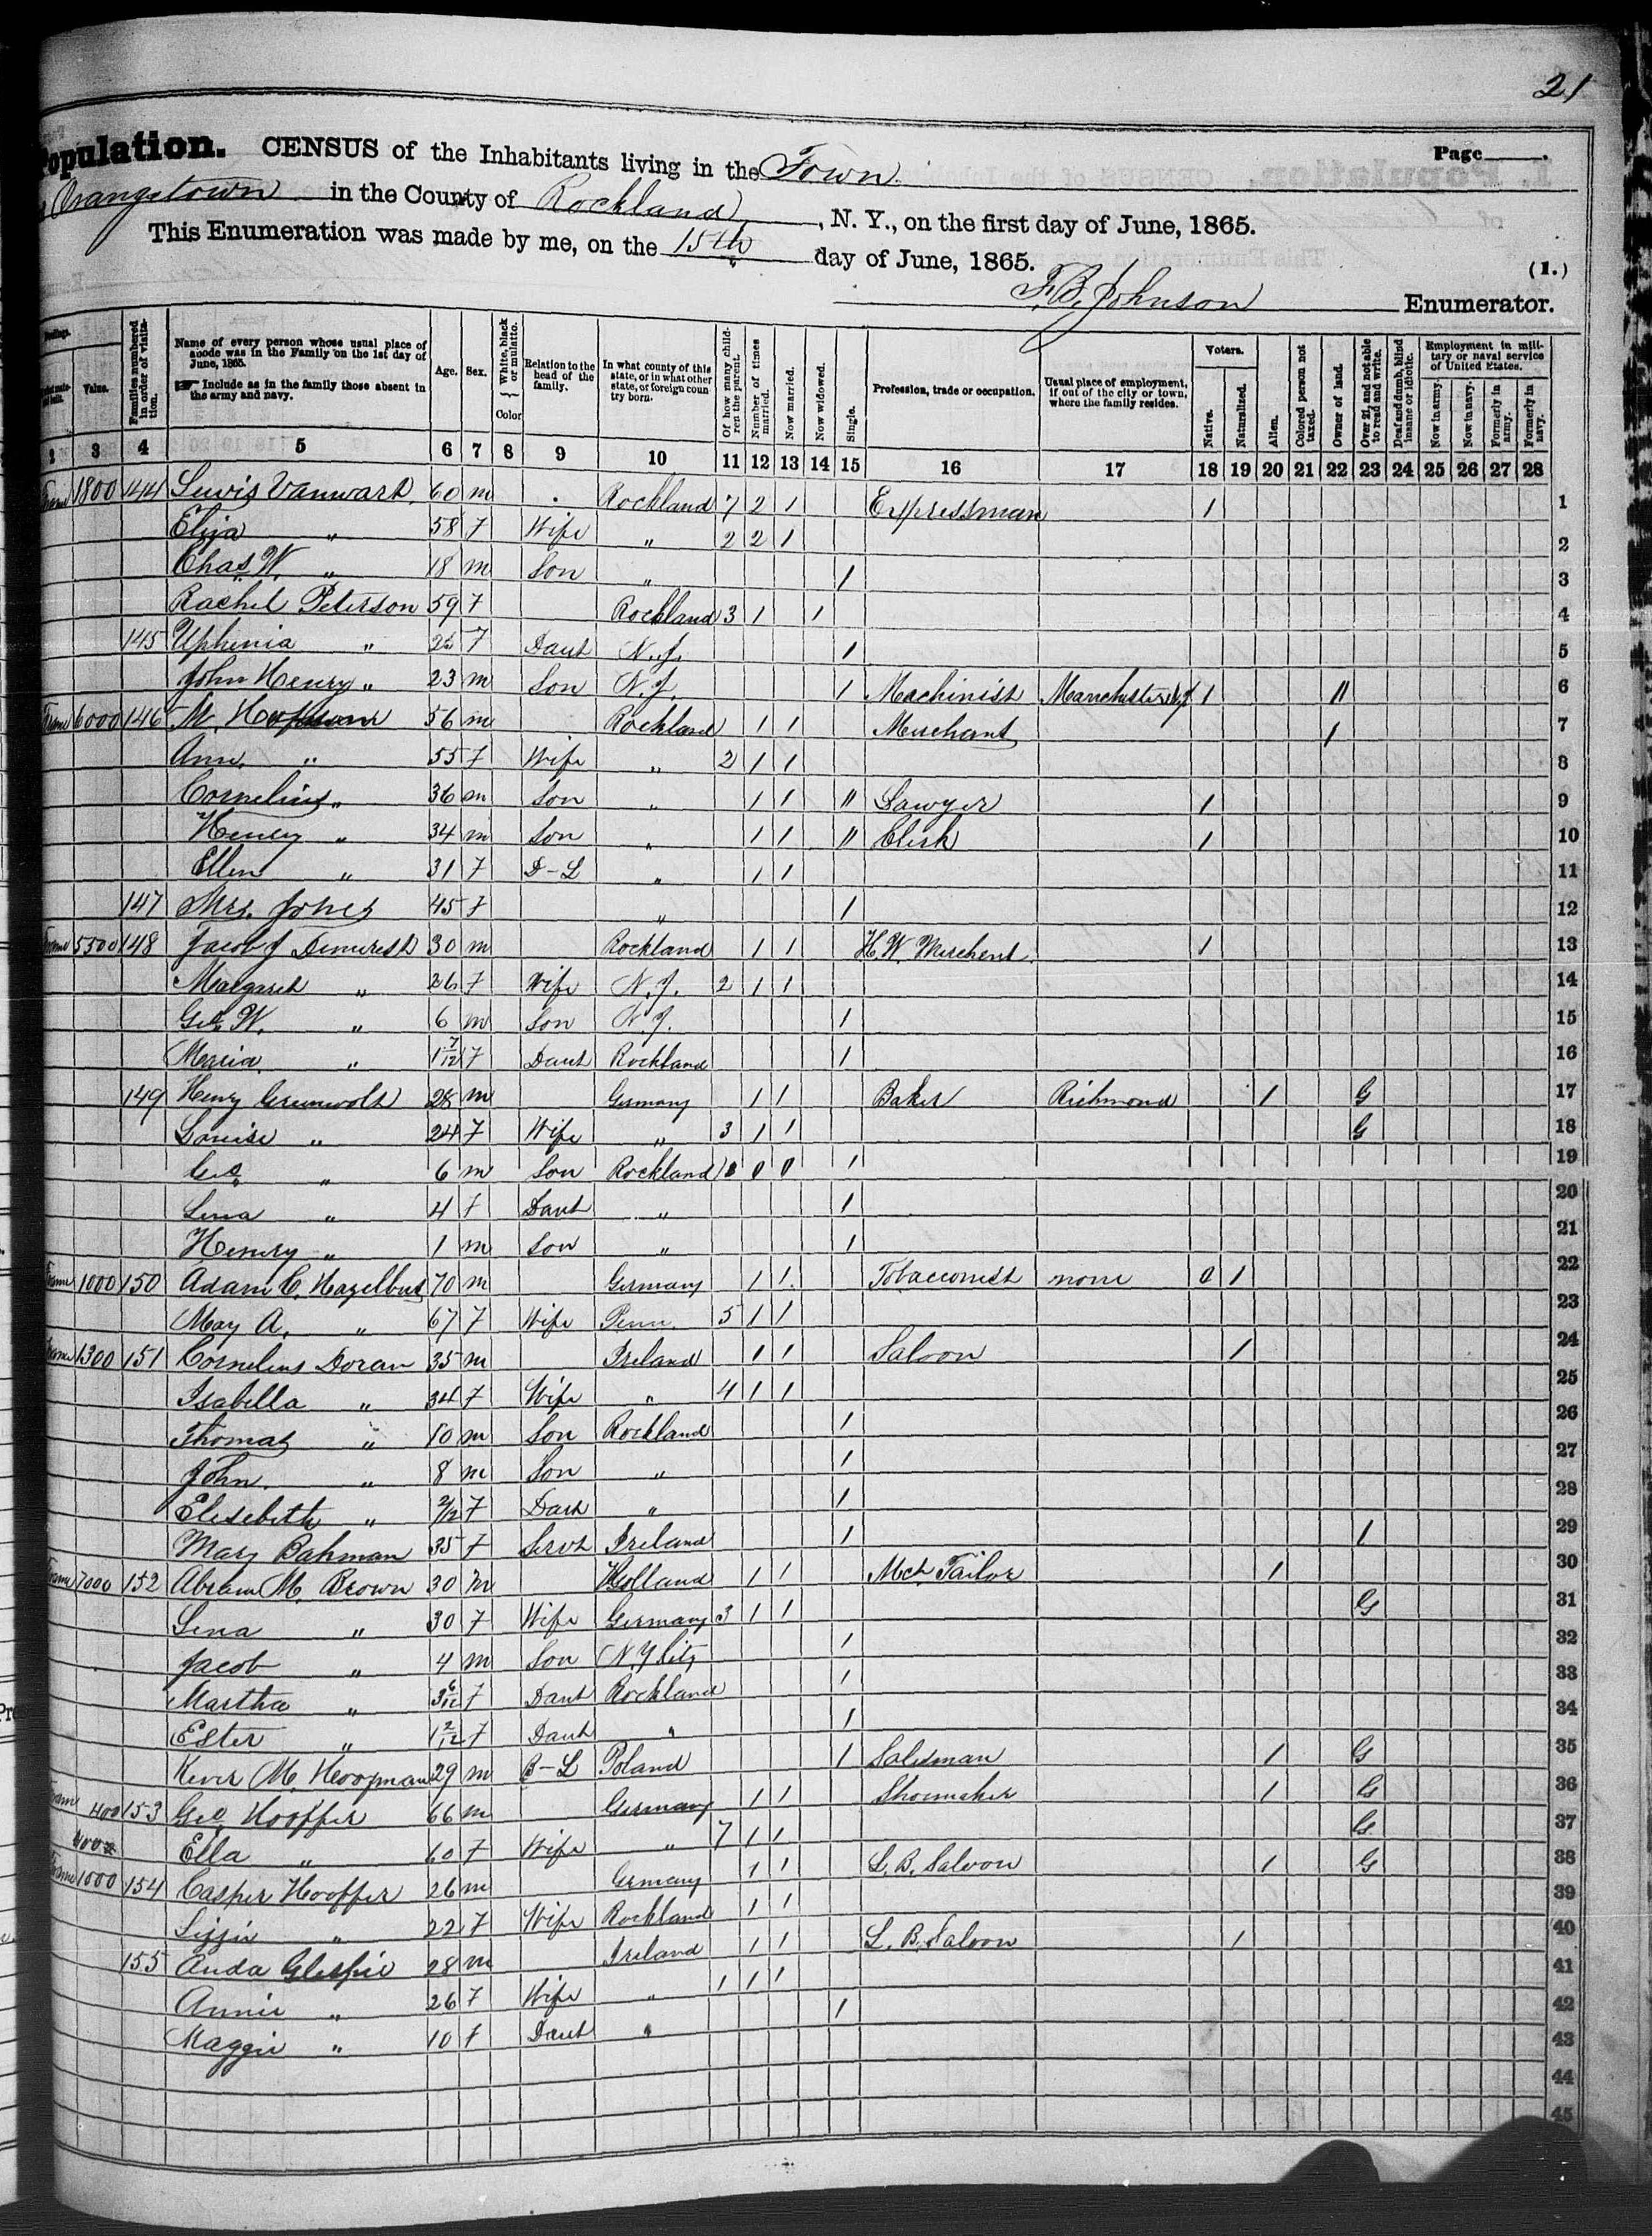 21
Population. CENSUS of the Inhabitants living in the Town Page ____.
Orangetown in the County of Rockland, N. Y., on the first day of June, 1865.
This Enumeration was made by me, on the 15th day of June, 1865. (1.)
F. B. Johnson Enumerator.
Value. Families numbered in order of visitation. Name of every person whose usual place of abode was in the Family on the 1st day of June, 1865. Include as in the family those absent in the army and navy. Age. Sex. White, black or mulatto. Color Relation to the head of the family. In what county of this state, or in what other state, or foreign country born. Of how many children the parent. Number of times married. Now married. Now widowed. Single. Profession, trade or occupation. Usual place of employment, if out of the city or town, where the family resides. Voters. Native. Naturalized. Alien. Colored person not taxed. Owner of land. Over 21, and not able to read and write. Deaf and dumb, blind insane or idiotic. Employment in military or naval service of United States. Now in army. Now in navy. Formerly in army. Formerly in navy.
2 3 4 5 6 7 8 9 10 11 12 13 14 15 16 17 18 19 20 21 22 23 24 25 26 27 28
Frame 1800 144 Lewis Vanwart 60 m Rockland 7 2 1 Expressman 1 1
Eliza " 58 F Wife " 2 2 1 2
Chas. W. " 18 m Son " 1 3
Rachel Peterson 59 F Rockland 3 1 1 4
145 Uphemia " 25 F Daut N.J. 1 5
John Henry " 23 m Son N.J. 1 Machinist Manchester 1 11 6
Frame 6000 146 M. 56 m Rockland 1 1 Merchant 1 7
Ann " 55 F Wife " 2 1 1 8
Cornelius " 36 m Son " 1 1 11 Lawyer 1 9
Henry " 34 m Son " 1 1 11 Clerk 1 10
Ellen " 31 F D-L " 1 1 11
147 Mrs. Jones 45 F " 1 12
Frame 5500 148 Jacob J Demerest 30 m Rockland 1 1 H.W. Merchent 1 13
Margaret " 26 F Wife N.J. 2 1 1 14
Geo. W. " 6 m Son N.J. 1 15
Maria " 1 7/12 F Daut Rockland 1 16
149 Henry Grunwolt 28 m Germany 1 1 Baker Richmond 1 G 17
Louise " 24 F Wife " 3 1 1 G 18
Geo " 6 m Son Rockland 0 0 1 19
Lena " 4 F Daut " 1 20
Henry " 1 m Son " 1 21
Frame 1000 150 Adam C. Hazelbut 70 m Germany 1 1 Tobacconist none 0 1 22
May A. " 67 F Wife Penn. 5 1 1 23
Frame 1300 151 Cornelius Doran 35 m Ireland 1 1 Saloon 1 24
Isabella " 34 F Wife " 4 1 1 25
Thomas " 10 m Son Rockland 1 26
John " 8 m Son " 1 27
Elisebeth " 2/12 F Daut " 1 28
Mary Bahman 35 F Servt Ireland 1 1 29
Frame 7000 152 Abram M. Brown 30 m Holland 1 1 Mch Tailor 1 30
Lena " 30 F Wife Germany 3 1 1 G 31
Jacob " 4 m Son N.Y City 1 32
Martha " 3 6/12 F Daut Rockland 1 33
Ester " 1 2/12 F Daut " 1 34
M. Koopman 29 m B-L Poland 1 Salesman 1 G 35
Frame 400 153 Geo. Hooffer 66 m Germany 1 1 Shoemaker 1 G 36
Ella " 60 F Wife " 7 1 1 G 37
Frame 1000 154 Casper Hooffer 26 m Germany 1 1 L.B. Saloon 1 G 38
Lizzie " 22 F Wife Rockland 1 1 39
155 Anda Glespie 28 m Ireland 1 1 L.B. Saloon 1 40
Annie " 26 F Wife " 1 1 1 41
Maggie " 10 F Daut " 1 42
43
44
45